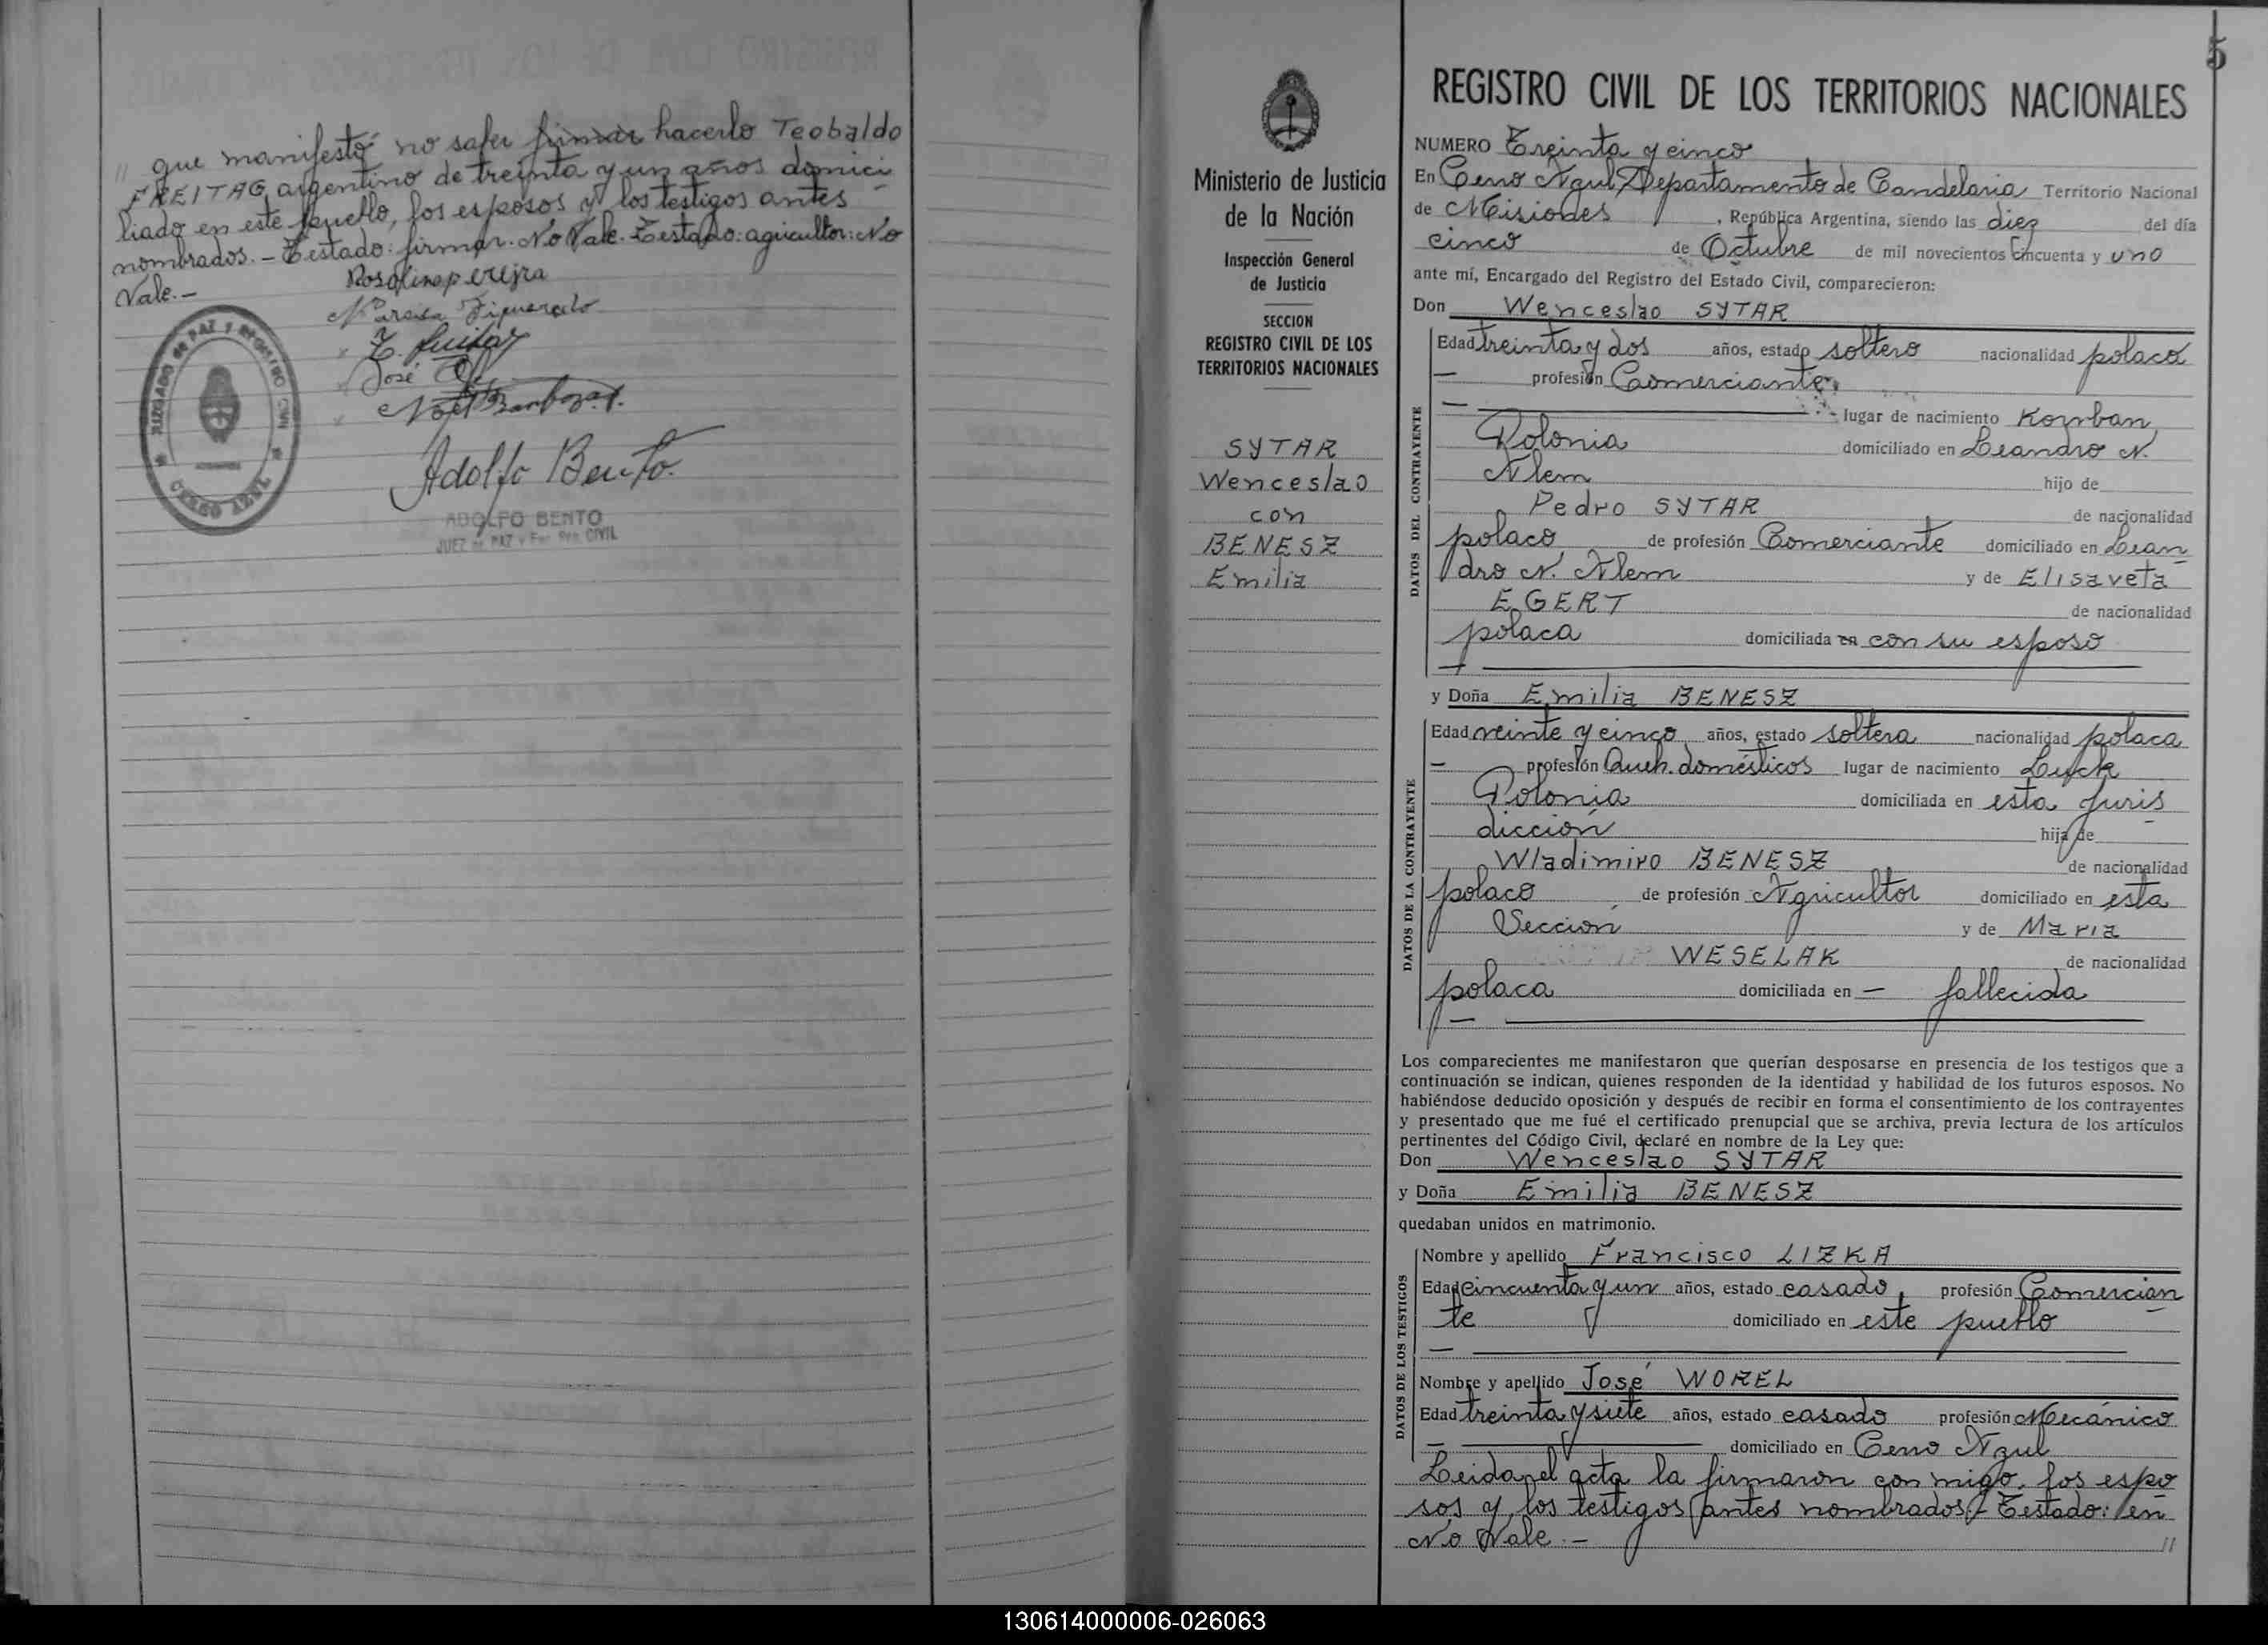 " que manifestó no saber firmar hacerlo Teobaldo
FREITAG, argentino de treinta y un años domici
liado en este pueblo, los esposos y los testigos antes
nombrados. - Testado: firmar. No Vale. Testado: agricultor: No
Vale. -
Rosalina pereira
Narcisa Figueredo
José
Noel Barboza
Adolfo Bento.
JUZGADO DE PAZ Y REGISTRO CIVIL
CERRO AZUL
ADOLFO BENTO
JUEZ de PAZ y Enc. Reg. CIVIL
Ministerio de Justicia
de la Nación
Inspección General
de Justicia
SECCION
REGISTRO CIVIL DE LOS
TERRITORIOS NACIONALES
SYTAR
Wenceslao
con
BENESZ
Emilia
5
REGISTRO CIVIL DE LOS TERRITORIOS NACIONALES
NUMERO Treinta y cinco
En Cerro Azul, Departamento de Candelaria Territorio Nacional
de Misiones, República Argentina, siendo las diez del día
cinco de Octubre de mil novecientos Cincuenta y uno
ante mí, Encargado del Registro del Estado Civil, comparecieron:
Don Wenceslao SYTAR
DATOS DEL CONTRAYENTE
Edad treinta y dos años, estado soltero nacionalidad polaca
— profesión Comerciante
— lugar de nacimiento Kowban
Polonia domiciliado en Leandro N.
Alem hijo de
Pedro SYTAR de nacionalidad
polaco de profesión Comerciante domiciliado en Lean
dro N. Alem y de Elisaveta
EGERT de nacionalidad
polaca domiciliada en con su esposo
y Doña Emilia BENESZ
DATOS DE LA CONTRAYENTE
Edad veinte y cinco años, estado soltera nacionalidad polaca
— profesión Queh. domésticos lugar de nacimiento Luck
Polonia domiciliada en esta juris
dicción hija de
Wladimiro BENESZ de nacionalidad
polaco de profesión Agricultor domiciliado en esta
Sección y de Maria
WESELAK de nacionalidad
polaca domiciliada en — fallecida
Los comparecientes me manifestaron que querían desposarse en presencia de los testigos que a
continuación se indican, quienes responden de la identidad y habilidad de los futuros esposos. No
habiéndose deducido oposición y después de recibir en forma el consentimiento de los contrayentes
y presentado que me fué el certificado prenupcial que se archiva, previa lectura de los artículos
pertinentes del Código Civil, declaré en nombre de la Ley que:
Don Wenceslao SYTAR
y Doña Emilia BENESZ
quedaban unidos en matrimonio.
DATOS DE LOS TESTIGOS
Nombre y apellido Francisco LIZKA
Edad cincuenta y un años, estado casado, profesión Comercian
te domiciliado en este pueblo
Nombre y apellido José WOREL
Edad treinta y siete años, estado casado profesión Mecánico
— domiciliado en Cerro Azul
Leida el acta la firmaron con migo, los espo
sos y los testigos antes nombrados. - Testado: en
No Vale. - //
130614000006-026063